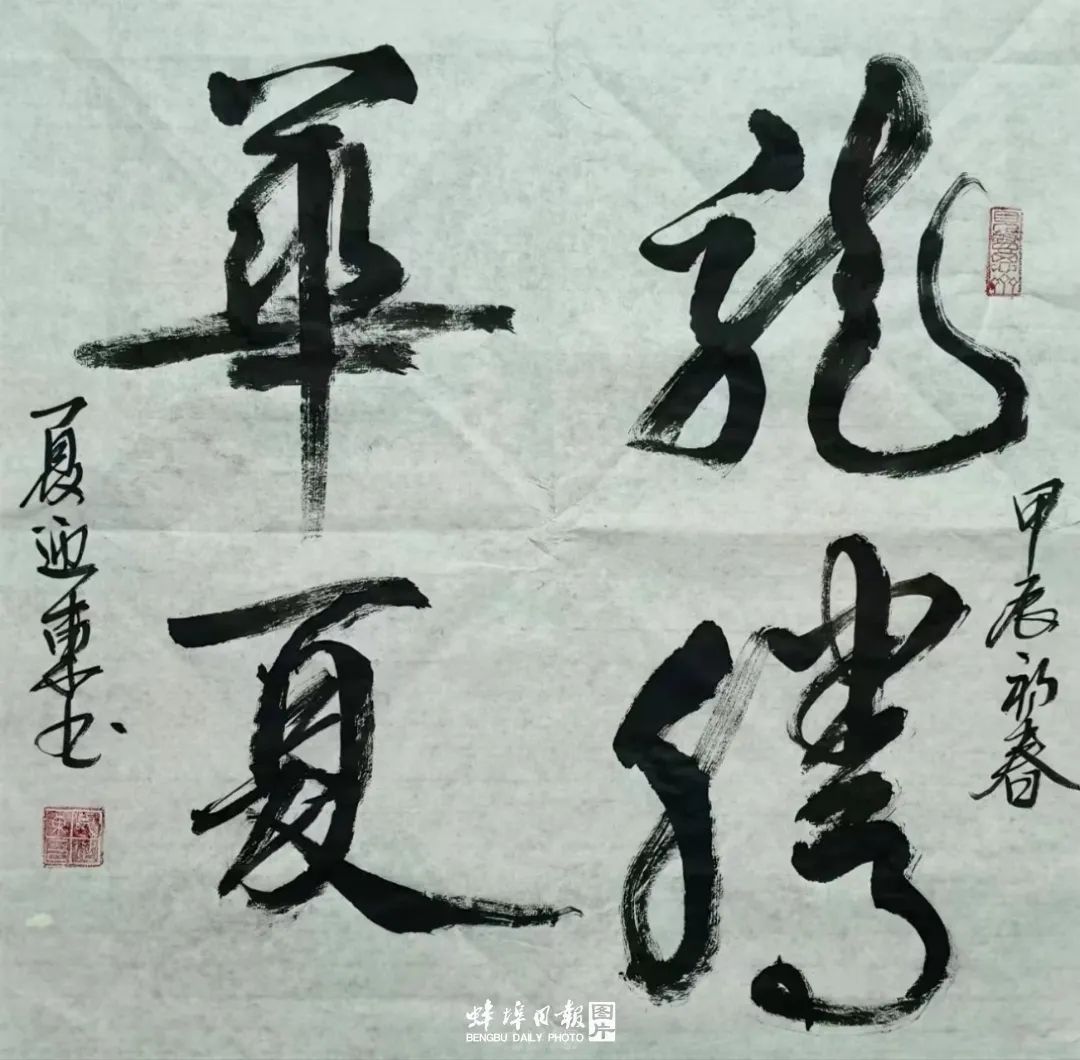 龍騰
華夏
甲辰初春
夏迎東书
蚌埠日報 图库
BENGBU DAILY PHOTO